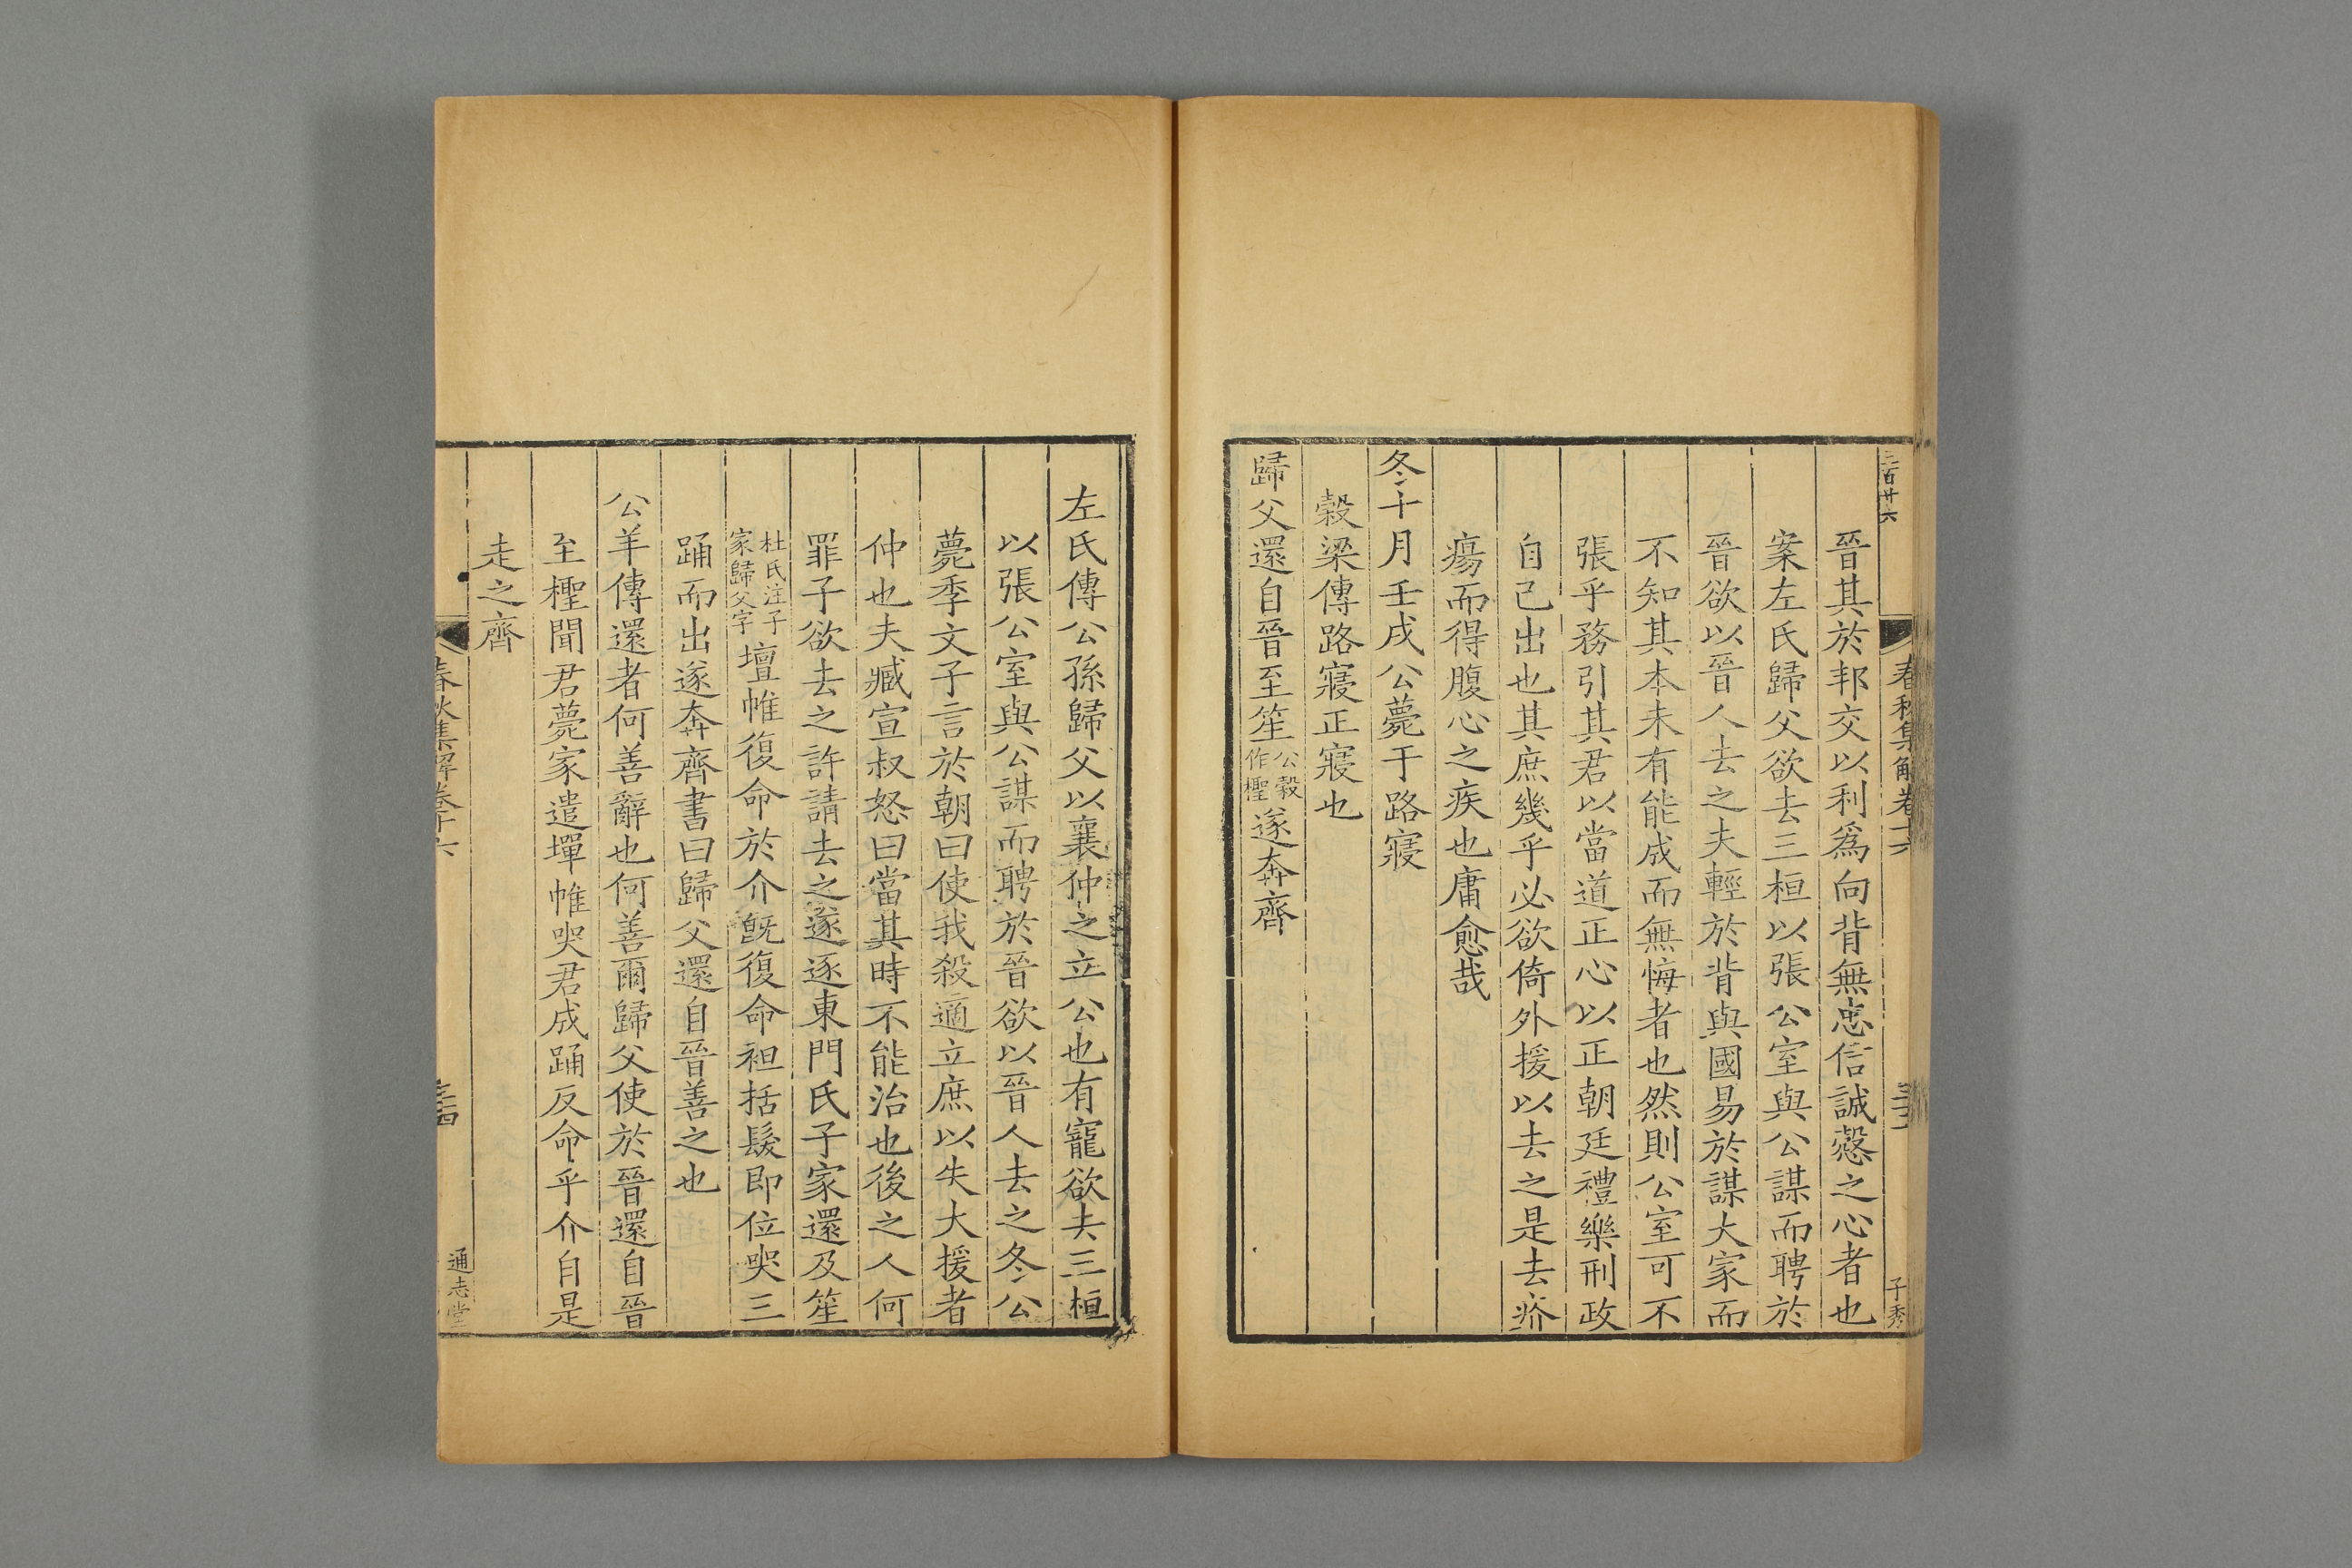 三百卄六
春秋集解卷十六
三十三
子秀
晉其於邦交以利爲向背無忠信誠慤之心者也
案左氏歸父欲去三桓以張公室與公謀而聘於
晉欲以晉人去之夫輕於背與國易於謀大家而
不知其本未有能成而無悔者也然則公室可不
張乎務引其君以當道正心以正朝廷禮樂刑政
自己出也其庶幾乎必欲倚外援以去之是去疥
瘍而得腹心之疾也庸愈哉
冬十月壬戌公薨于路寢
穀梁傳路寢正寢也
歸父還自晉至笙公穀作檉遂奔齊
左氏傳公孫歸父以襄仲之立公也有寵欲去三桓
以張公室與公謀而聘於晉欲以晉人去之冬公
薨季文子言於朝曰使我殺適立庶以失大援者
仲也夫臧宣叔怒曰當其時不能治也後之人何
罪子欲去之許請去之遂逐東門氏子家還及笙
杜氏注子家歸父字壇帷復命於介旣復命袒括髮即位哭三
踊而出遂奔齊書曰歸父還自晉善之也
公羊傳還者何善辭也何善爾歸父使於晉還自晉
至檉聞君薨家遣墠帷哭君成踊反命乎介自是
走之齊
春秋集解卷十六
三十四
通志堂